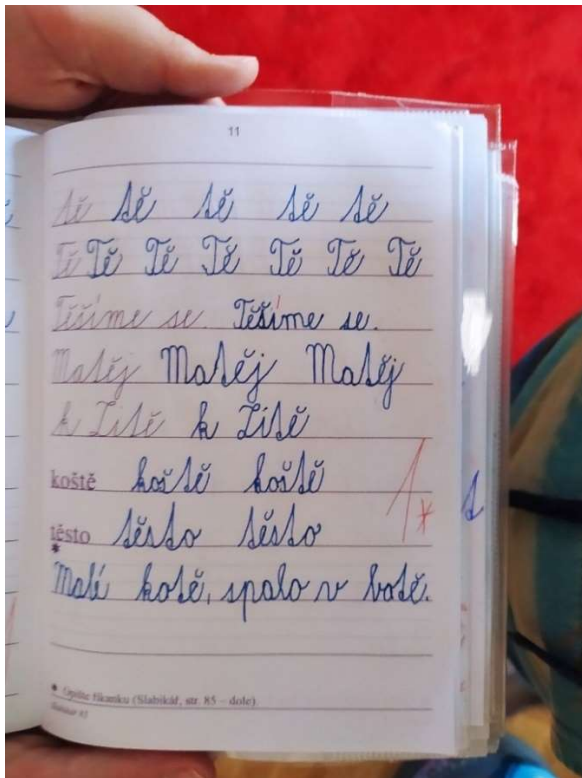 11
tě tě tě tě tě
Tě Tě Tě Tě Tě Tě Tě
Těšíme se. Těšíme se.
Matěj Matěj Matěj
k Zitě k Zitě
koště koště koště
těsto těsto těsto
1*
* Malí kotě, spalo v botě.
* Opište říkanku (Slabikář, str. 85 – dole)